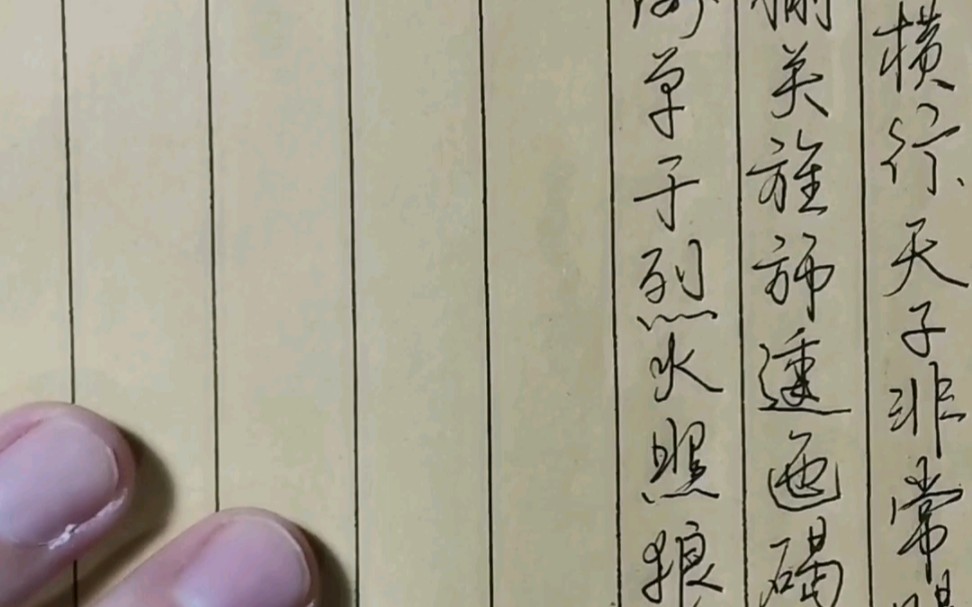 横行天子非常
关旌旆逶迤碣
单于烈火照狼